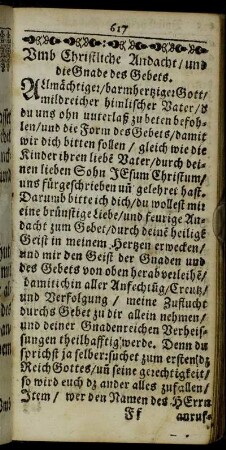 617
Vmb Christliche Andacht/ und
die Gnade des Gebets.
Allmächtiger/barmhertziger Gott/
mildreicher himlischer Vater/ d
du uns ohn unterlaß zu beten befoh-
len/und die Form des Gebets/damit
wir dich bitten sollen / gleich wie die
Kinder ihren liebē Vater/durch dei-
nen lieben Sohn JEsum Christum/
uns fürgeschrieben uñ gelehret hast.
Darumb bitte ich dich/du wollest mir
eine brünstige Liebe/und feurige An-
dacht zum Gebet/durch deinē heilige
Geist in meinem Hertzen erwecken/
und mir den Geist der Gnaden und
des Gebets von oben herab verleihē/
damit ich in aller Anfechtūg/Creutz/
und Verfolgung / meine Zuflucht
durchs Gebet zu dir allein nehmen/
und deiner Gnadenreichen Verheis-
sungen theilhafftig werde. Denn du
sprichst ja selber: suchet zum ersten dz
Reich Gottes/uñ seine gerechtigkeit/
so wird euch dz ander alles zufallen/
Item / wer den Namen des HErrn
Ff anruf-